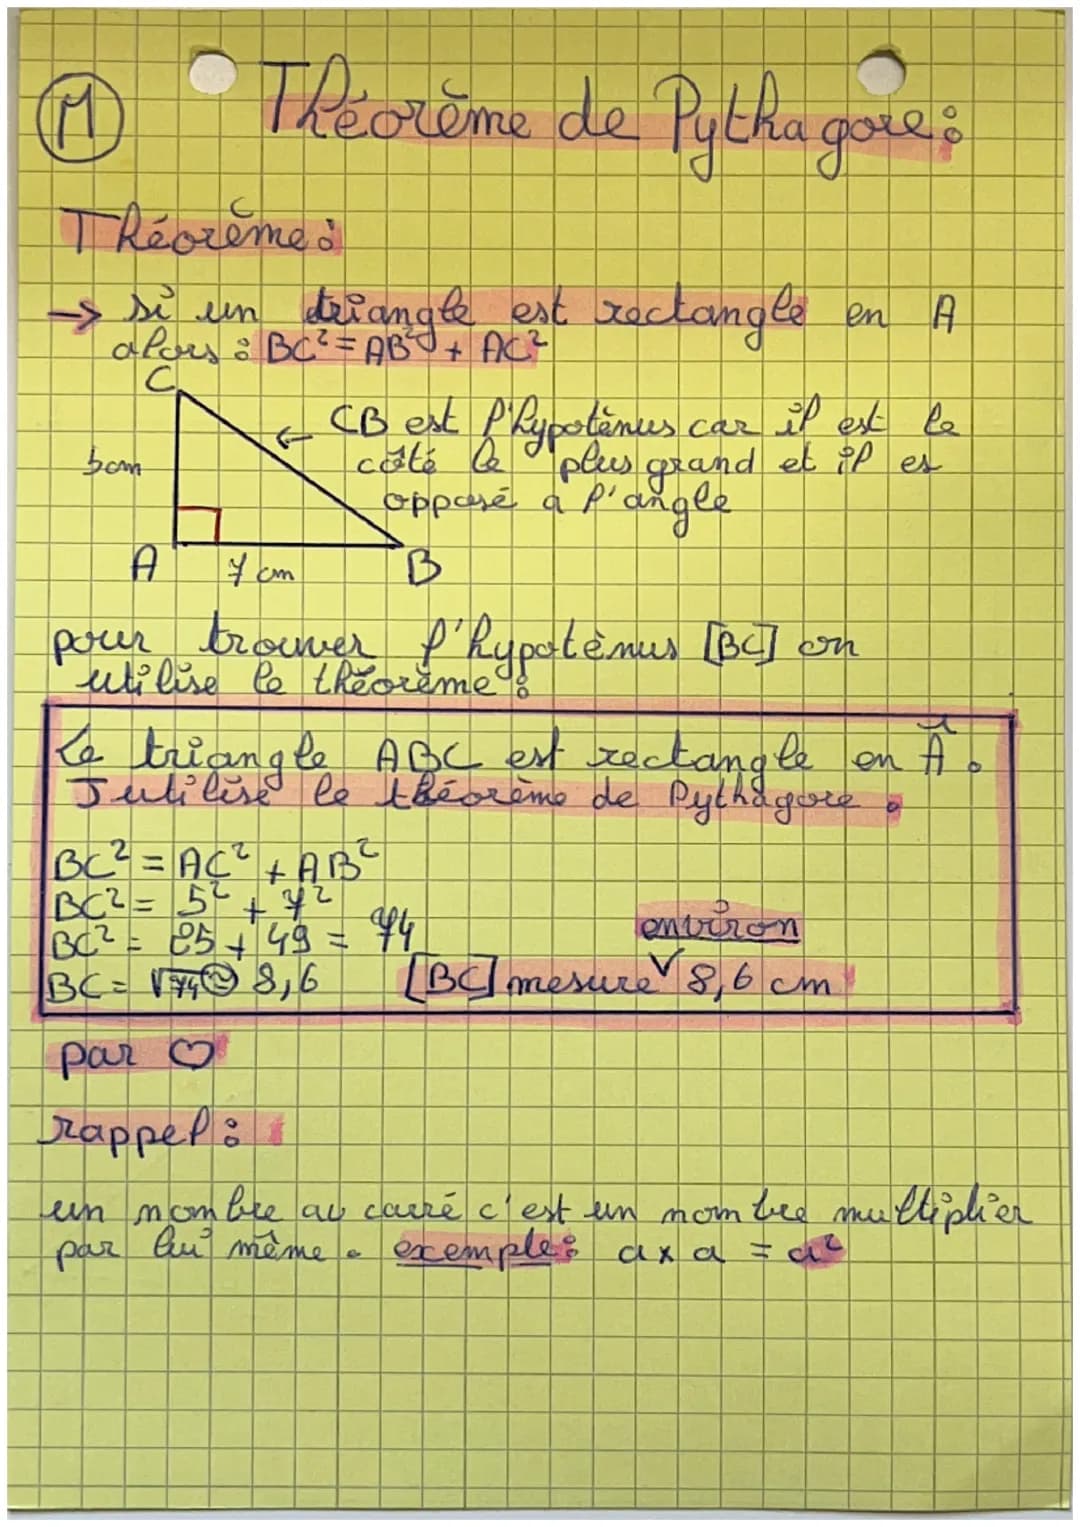 M
Théorème de Pythagore :
Théorème :
→ si un triangle est rectangle en A
alors : BC² = AB² + AC²
C
← CB est l'hypoténus car il est le
5cm côté le plus grand et il es
opposé a l'angle
A 7 cm B
pour trouver l'hypoténus [BC] on
utilise le théorème :
Le triangle ABC est rectangle en Â.
J utilise le théorème de Pythagore.
BC² = AC² + AB²
BC² = 5² + 7²
BC² = 25 + 49 = 74
environ
BC = √74 ≈ 8,6 [BC] mesure √ 8,6 cm
par ♡
rappel :
un nombre au carré c'est un nombre multiplier
par lui même. exemple : a x a = a²